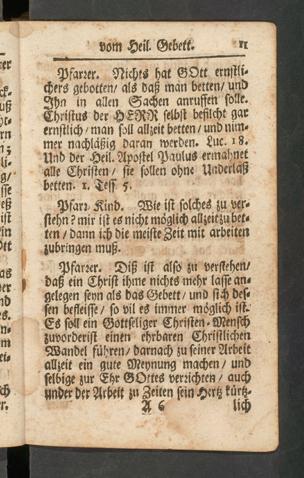 vom Heil. Gebett. 11
Pfarrer. Nichts hat GOtt ernstli-
chers gebotten/ als daß man betten/ und
Ihn in allen Sachen anruffen solle.
Christus der HERR selbst befilcht gar
ernstlich/ man soll allzeit betten/ und nim-
mer nachläßig daran werden. Luc. 18.
Und der Heil. Apostel Paulus ermahnet
alle Christen/ sie sollen ohne Underlaß
betten. 1. Tess. 5.
Pfarr-Kind. Wie ist solches zu ver-
stehn? mir ist es nicht möglich allzeit zu bet-
ten/ dann ich die meiste Zeit mit arbeiten
zubringen muß.
Pfarrer. Diß ist also zu verstehen/
daß ein Christ ihme nichts mehr lasse an-
gelegen seyn als das Gebett/ und sich des-
sen befleisse/ so vil es immer möglich ist.
Es soll ein Gottseliger Christen-Mensch
zuvorderist einen ehrbaren Christlichen
Wandel führen/ darnach zu seiner Arbeit
allzeit ein gute Meynung machen/ und
selbige zur Ehr GOttes verrichten/ auch
under der Arbeit zu Zeiten sein Hertz kürtz-
A 6 lich